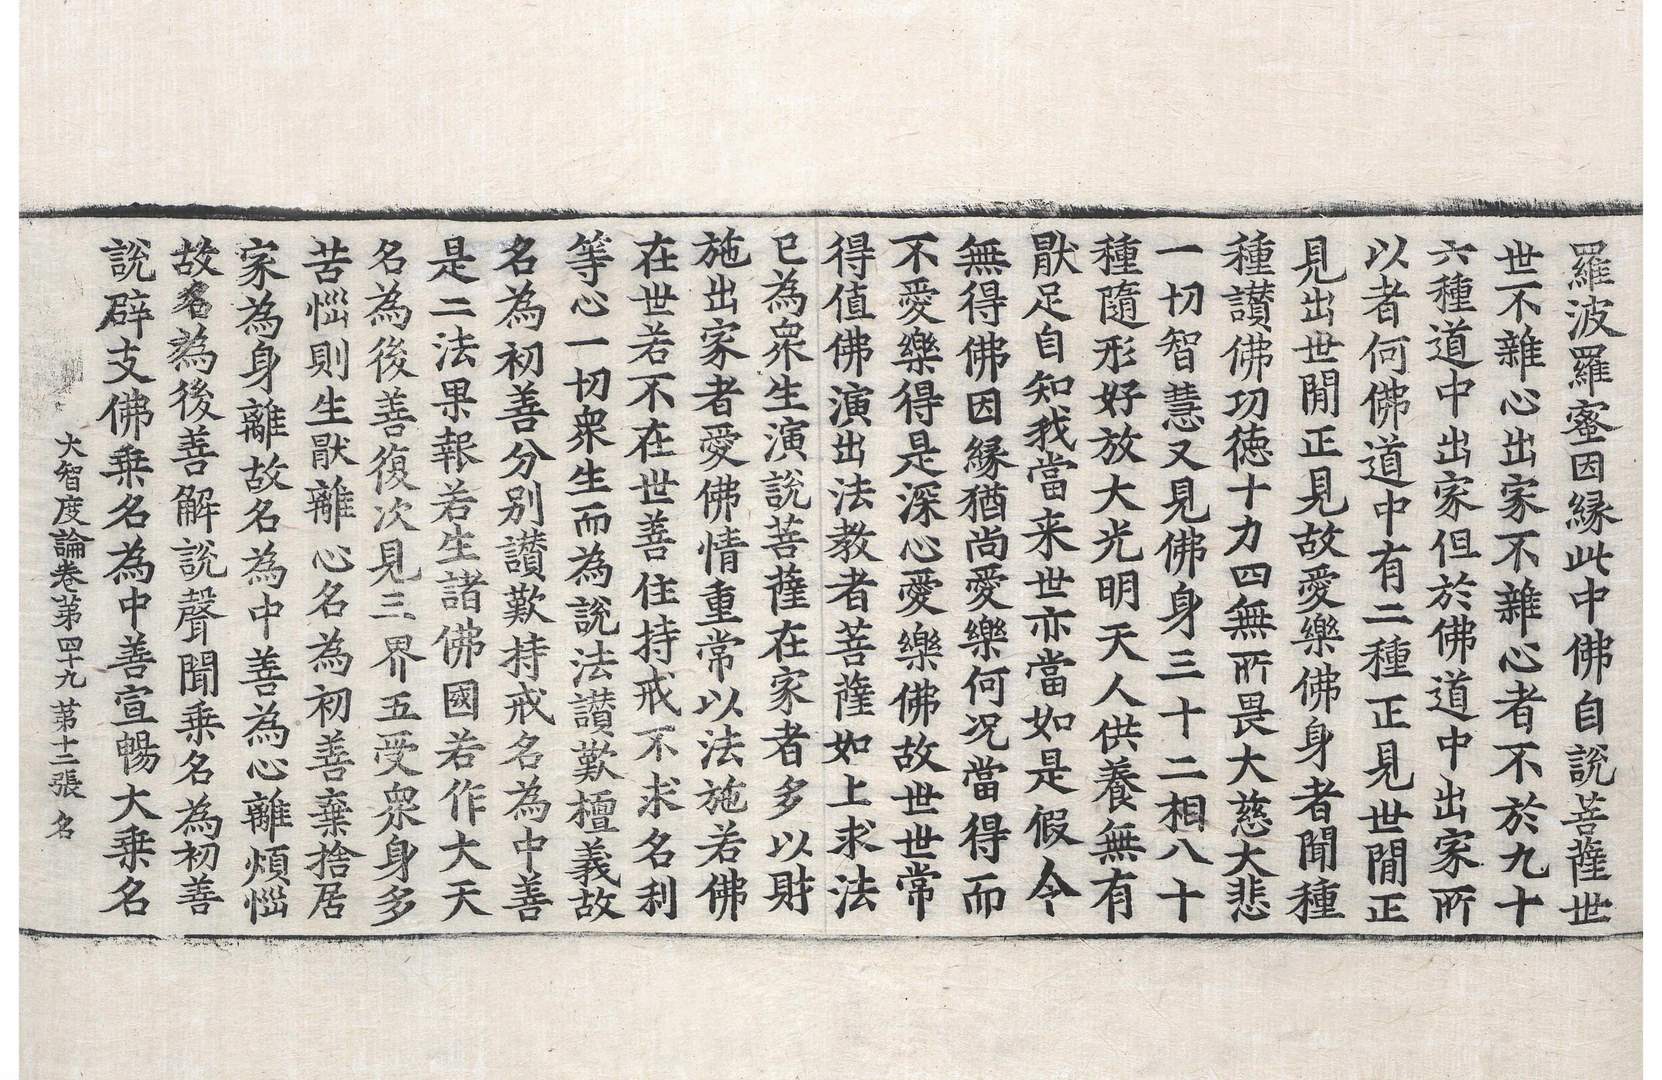 羅波羅蜜因縁此中佛自說菩薩世
世不雜心出家不雜心者不於九十
六種道中出家但於佛道中出家所
以者何佛道中有二種正見世閒正
見出世閒正見故愛樂佛身者聞種
種讃佛功德十力四無所畏大慈大悲
一切智慧又見佛身三十二相八十
種隨形好放大光明天人供養無有
猒足自知我當来世亦當如是假令
無得佛因縁猶尚愛樂何况當得而
不愛樂得是深心愛樂佛故世世常
得值佛演出法教者菩薩如上求法
已為衆生演說菩薩在家者多以財
施出家者愛佛情重常以法施若佛
在世若不在世善住持戒不求名利
等心一切衆生而為說法讃歎檀義故
名為初善分別讃歎持戒名為中善
是二法果報若生諸佛國若作大天
名為後善復次見三界五受衆身多
苦惱則生猒離心名為初善棄捨居
家為身離故名為中善為心離煩惱
故名為後善解說聲聞乗名為初善
說辟支佛乗名為中善宣暢大乗名
大智度論卷苐四十九 苐十二張 名